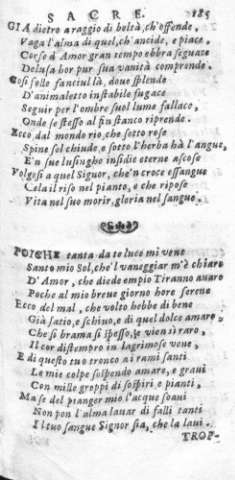 SACRE. 185
GIA dietro a raggio di beltà, ch'offende,
Vaga l'alma di quel, ch'ancide, e piace,
Corse d'Amor gran tempo ebbra seguace
Delusa hor pur sua vanità comprende.
Cosi folle fanciul là, doue splende
D'animaletto instabile fugace
Seguir per l'ombre suol lume fallace,
Onde se stesso al fin stanco riprende.
Ecco dal mondo rio, che sotto rose
Spine sol chiude, e sotto l'herba hà l'angue,
E'n sue lusinghe insidie eterne ascose
Volgosi a quel Signor, che'n croce essangue
Cela il riso nel pianto, e che ripose
Vita nel suo morir, gloria nel sangue.
POICHE tanta da te luce mi vene
Santo mio Sol, che'l vaneggiar m'è chiaro
D'Amor, che diede empio Tiranno auaro
Poche al mio breue giorno hore serene
Ecco del mal, che volto hebbe di bene
Già satio, e schiuo, e di quel dolce amaro,
Che si brama si spesso, e vien sì raro,
Il cor distempro in lagrimose vene,
E di questo tuo tronco a i rami santi
Le mie colpe sospendo amare, e graui
Con mille groppi di sospiri, e pianti,
Ma se del pianger mio l'acque soaui
Non pon l'alma lauar di falli tanti
Il tuo sangue Signor sia, che la laui.
TROP-